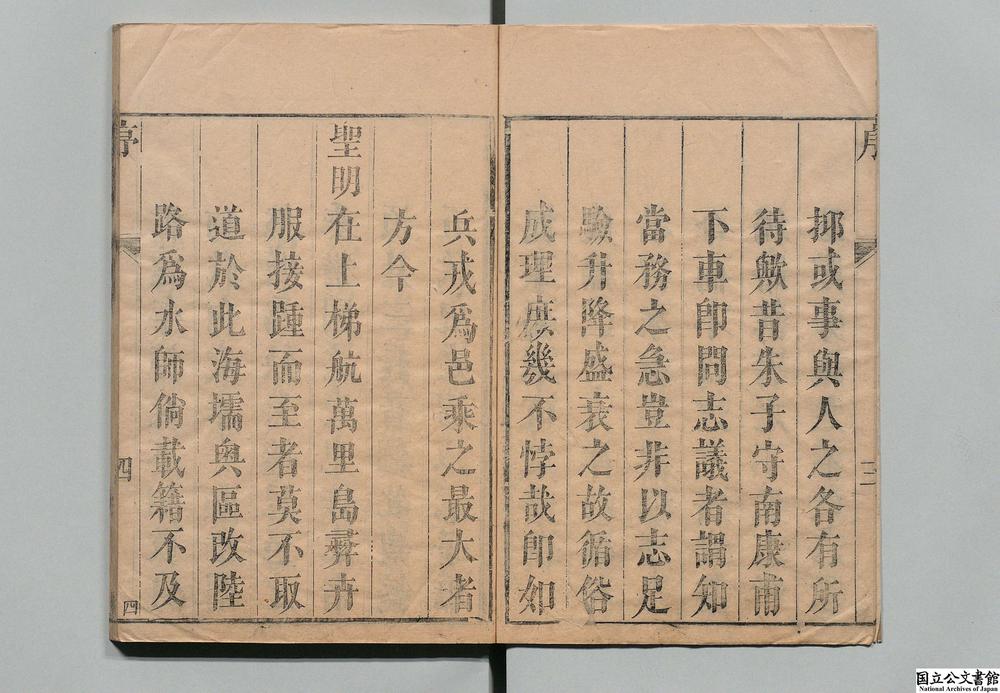 序
抑或事與人之各有所
待歟昔朱子守南康甫
下車即問志議者謂知
當務之急豈非以志足
驗升降盛衰之故循俗
成理庶幾不悖哉即如
三
兵戎爲邑乘之最大者
方今
聖明在上梯航萬里島彛卉
服接踵而至者莫不取
道於此海壖奧區改陸
路爲水師倘載籍不及
序
四
四
国立公文書館
National Archives of Japan